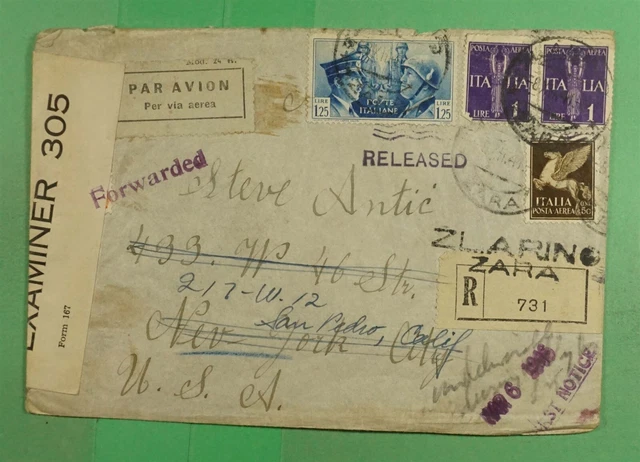 PAR AVION
Per via aerea
EXAMINER 305
Form 167
LIRE 1,25
POSTE ITALIANE
LIRE 1,25
POSTA AEREA
ITALIA
LIRE 1
POSTA AEREA
ITALIA
1
ITALIA
POSTA AEREA 50
ZARA
Forwarded
RELEASED
Steve Antić
433. W 46 Str.
217-W. 12
San Pedro, Calif
New York City
U. S. A.
ZLARINO
ZARA
R
731
6 1946
1ST NOTICE